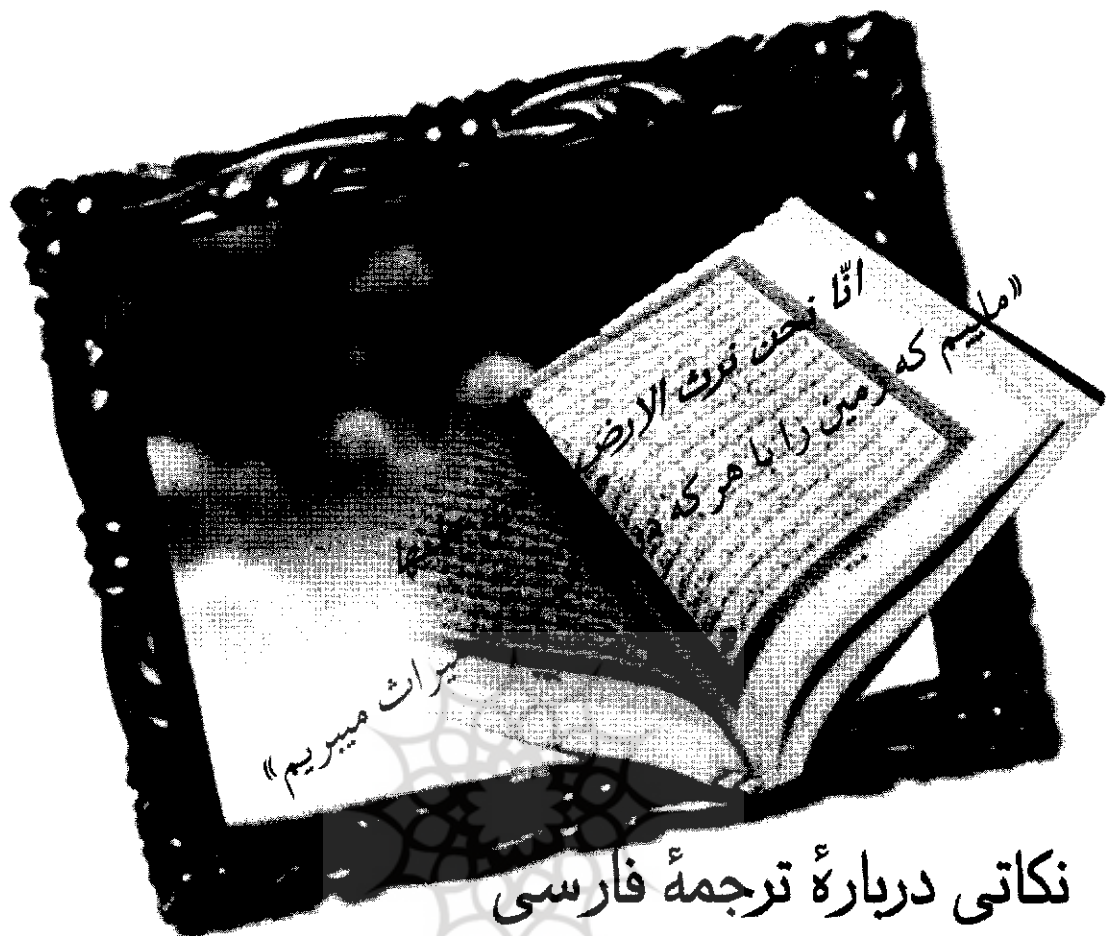 انّا نحن نرث الارض
«ماییم که زمین را با هر که
میراث میبریم»
نکاتی دربارهٔ ترجمهٔ فارسی